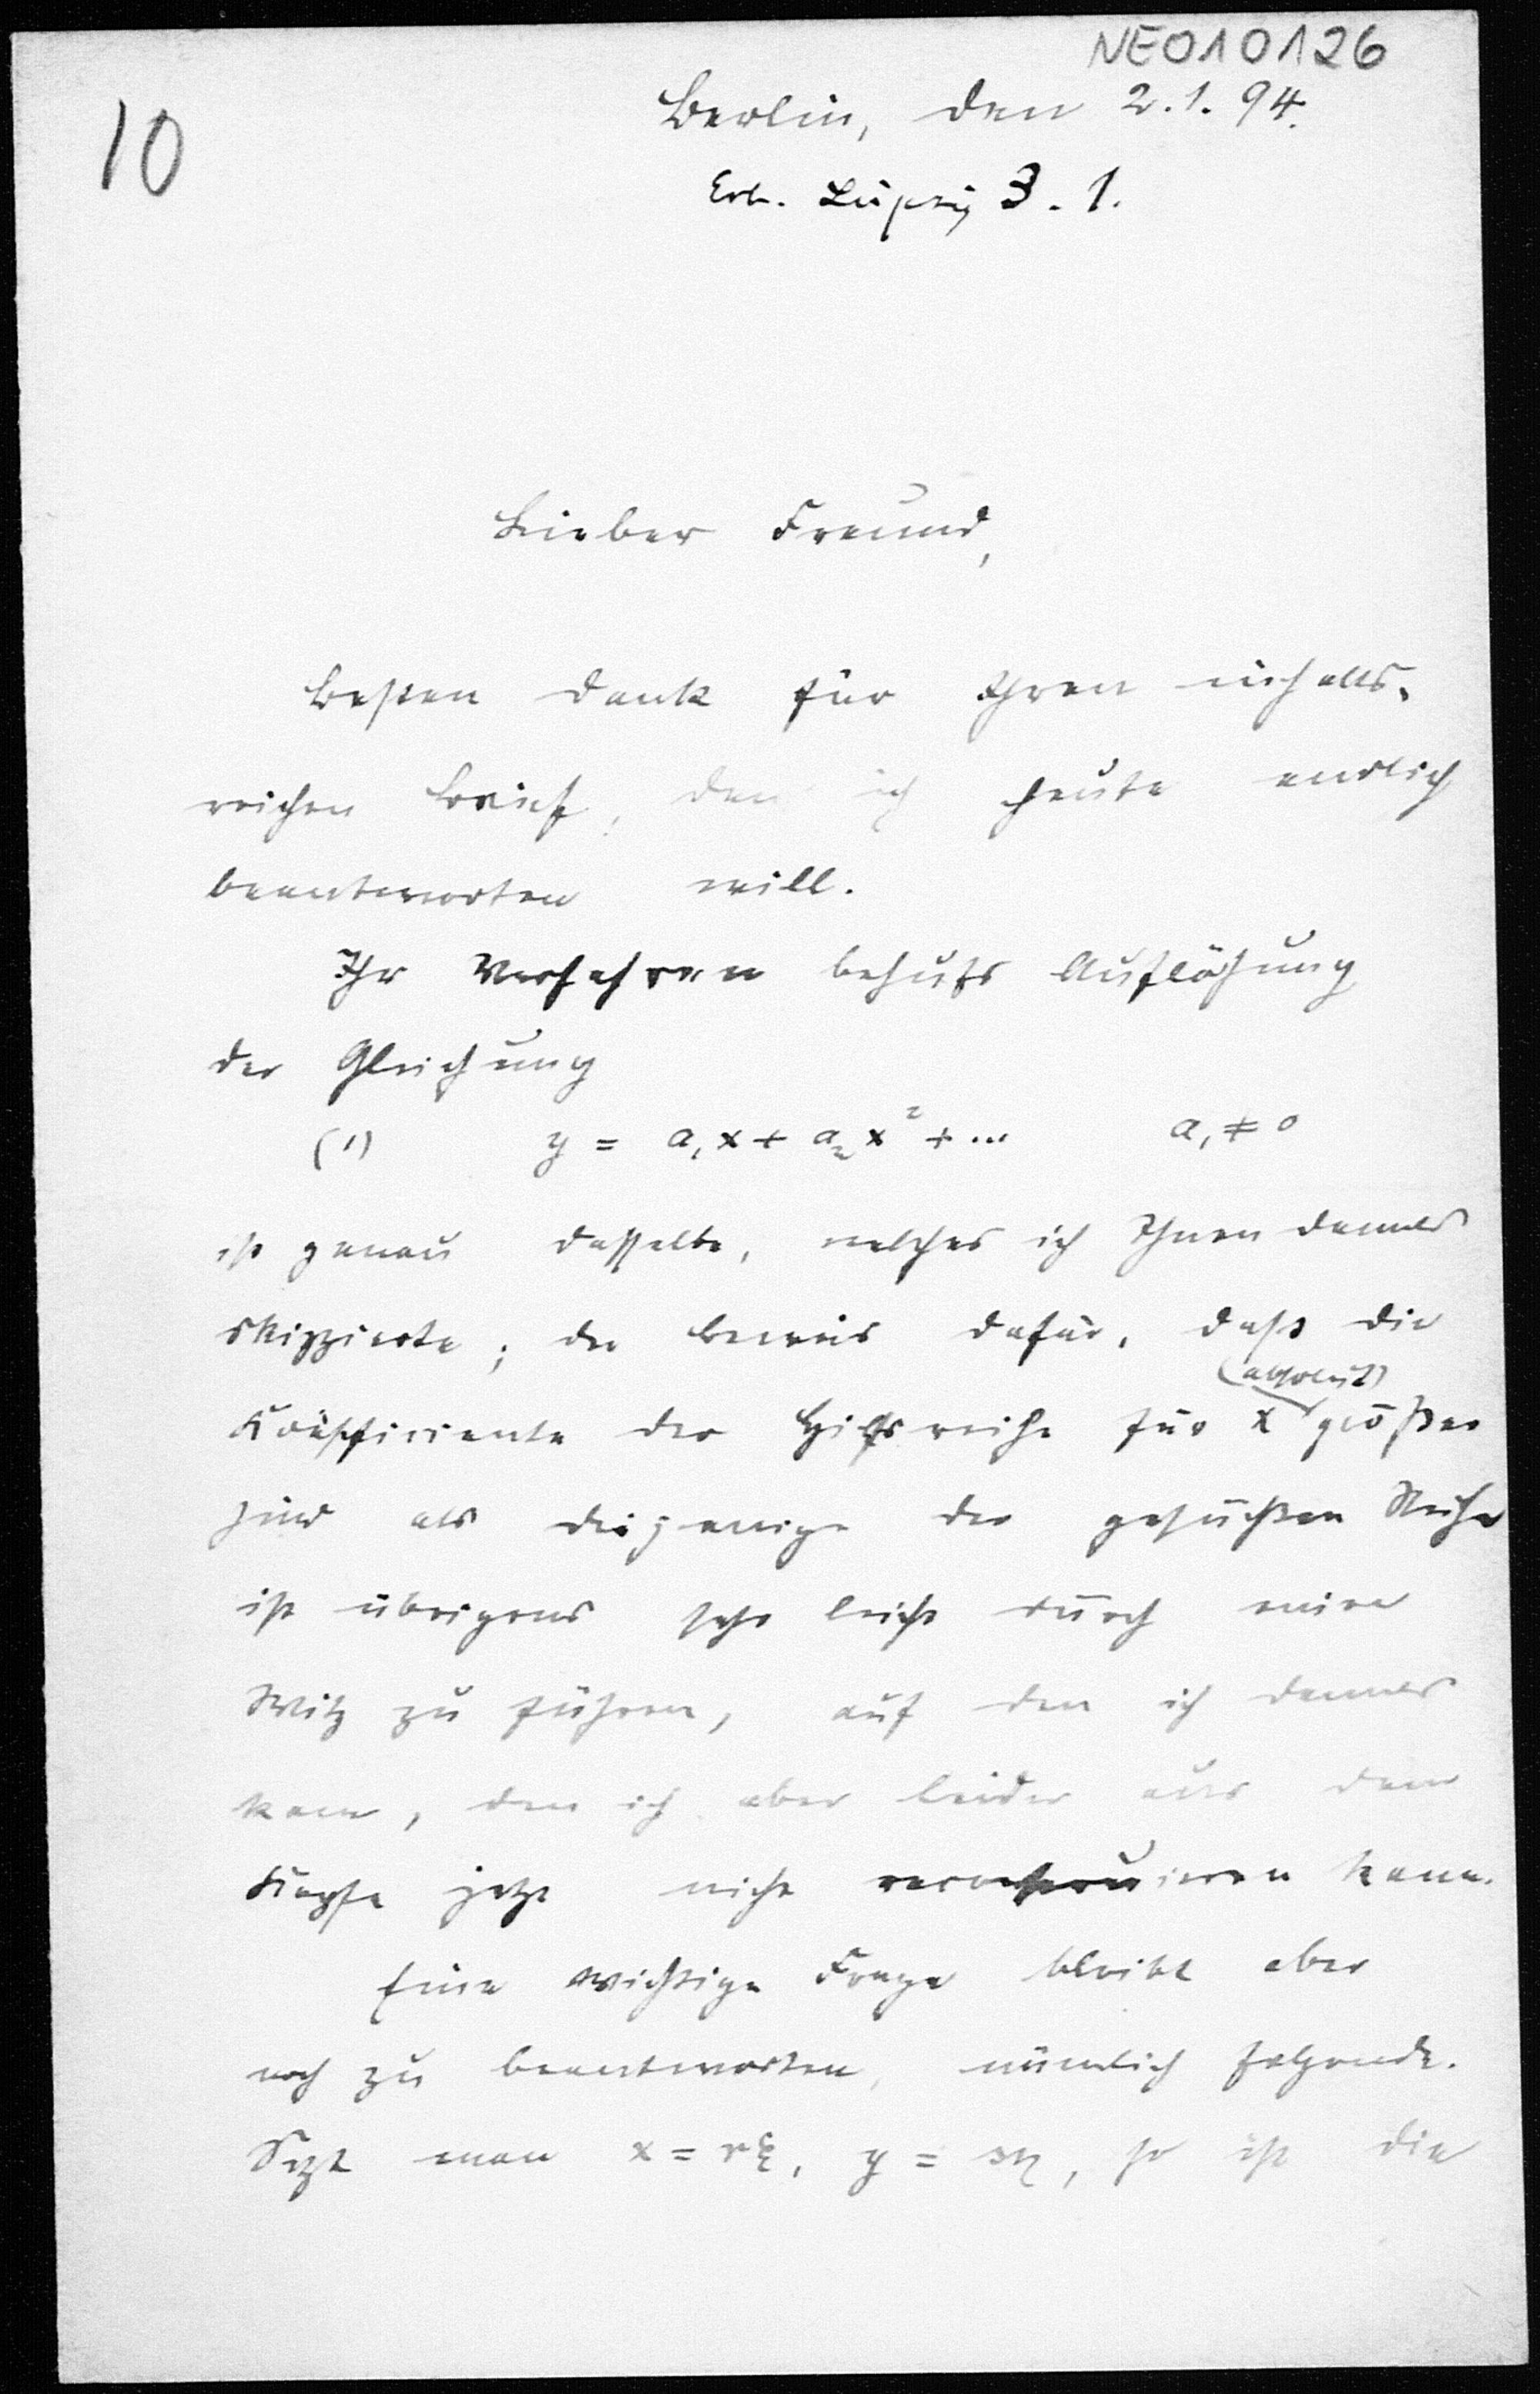 NE010126
10
Berlin, den 2.1.94.
Erh. Leipzig 3.1.
Lieber Freund,
Besten Dank für Ihren inhalts-
reichen Brief, den ich heute endlich
beantworten will.
Ihr Verfahren behufs Auflösung
der Gleichung
(1) y = a₁x + a₂x² + ... a₁ ≠ 0
ist genau dasselbe, welches ich Ihnen damals
skizzierte; der Beweis dafür, dass die
(absolut)
Koëfficienten der Hilfsreihe für x größer
sind als diejenigen der gesuchten Reihe
ist übrigens sehr leicht durch einen
Witz zu führen, auf den ich damals
kam, den ich aber leider aus dem
Kopfe jetzt nicht kann.
Eine wichtige Frage bleibt aber
noch zu beantworten, nämlich folgende.
Sezt man x = rξ, y = sη, so ist die